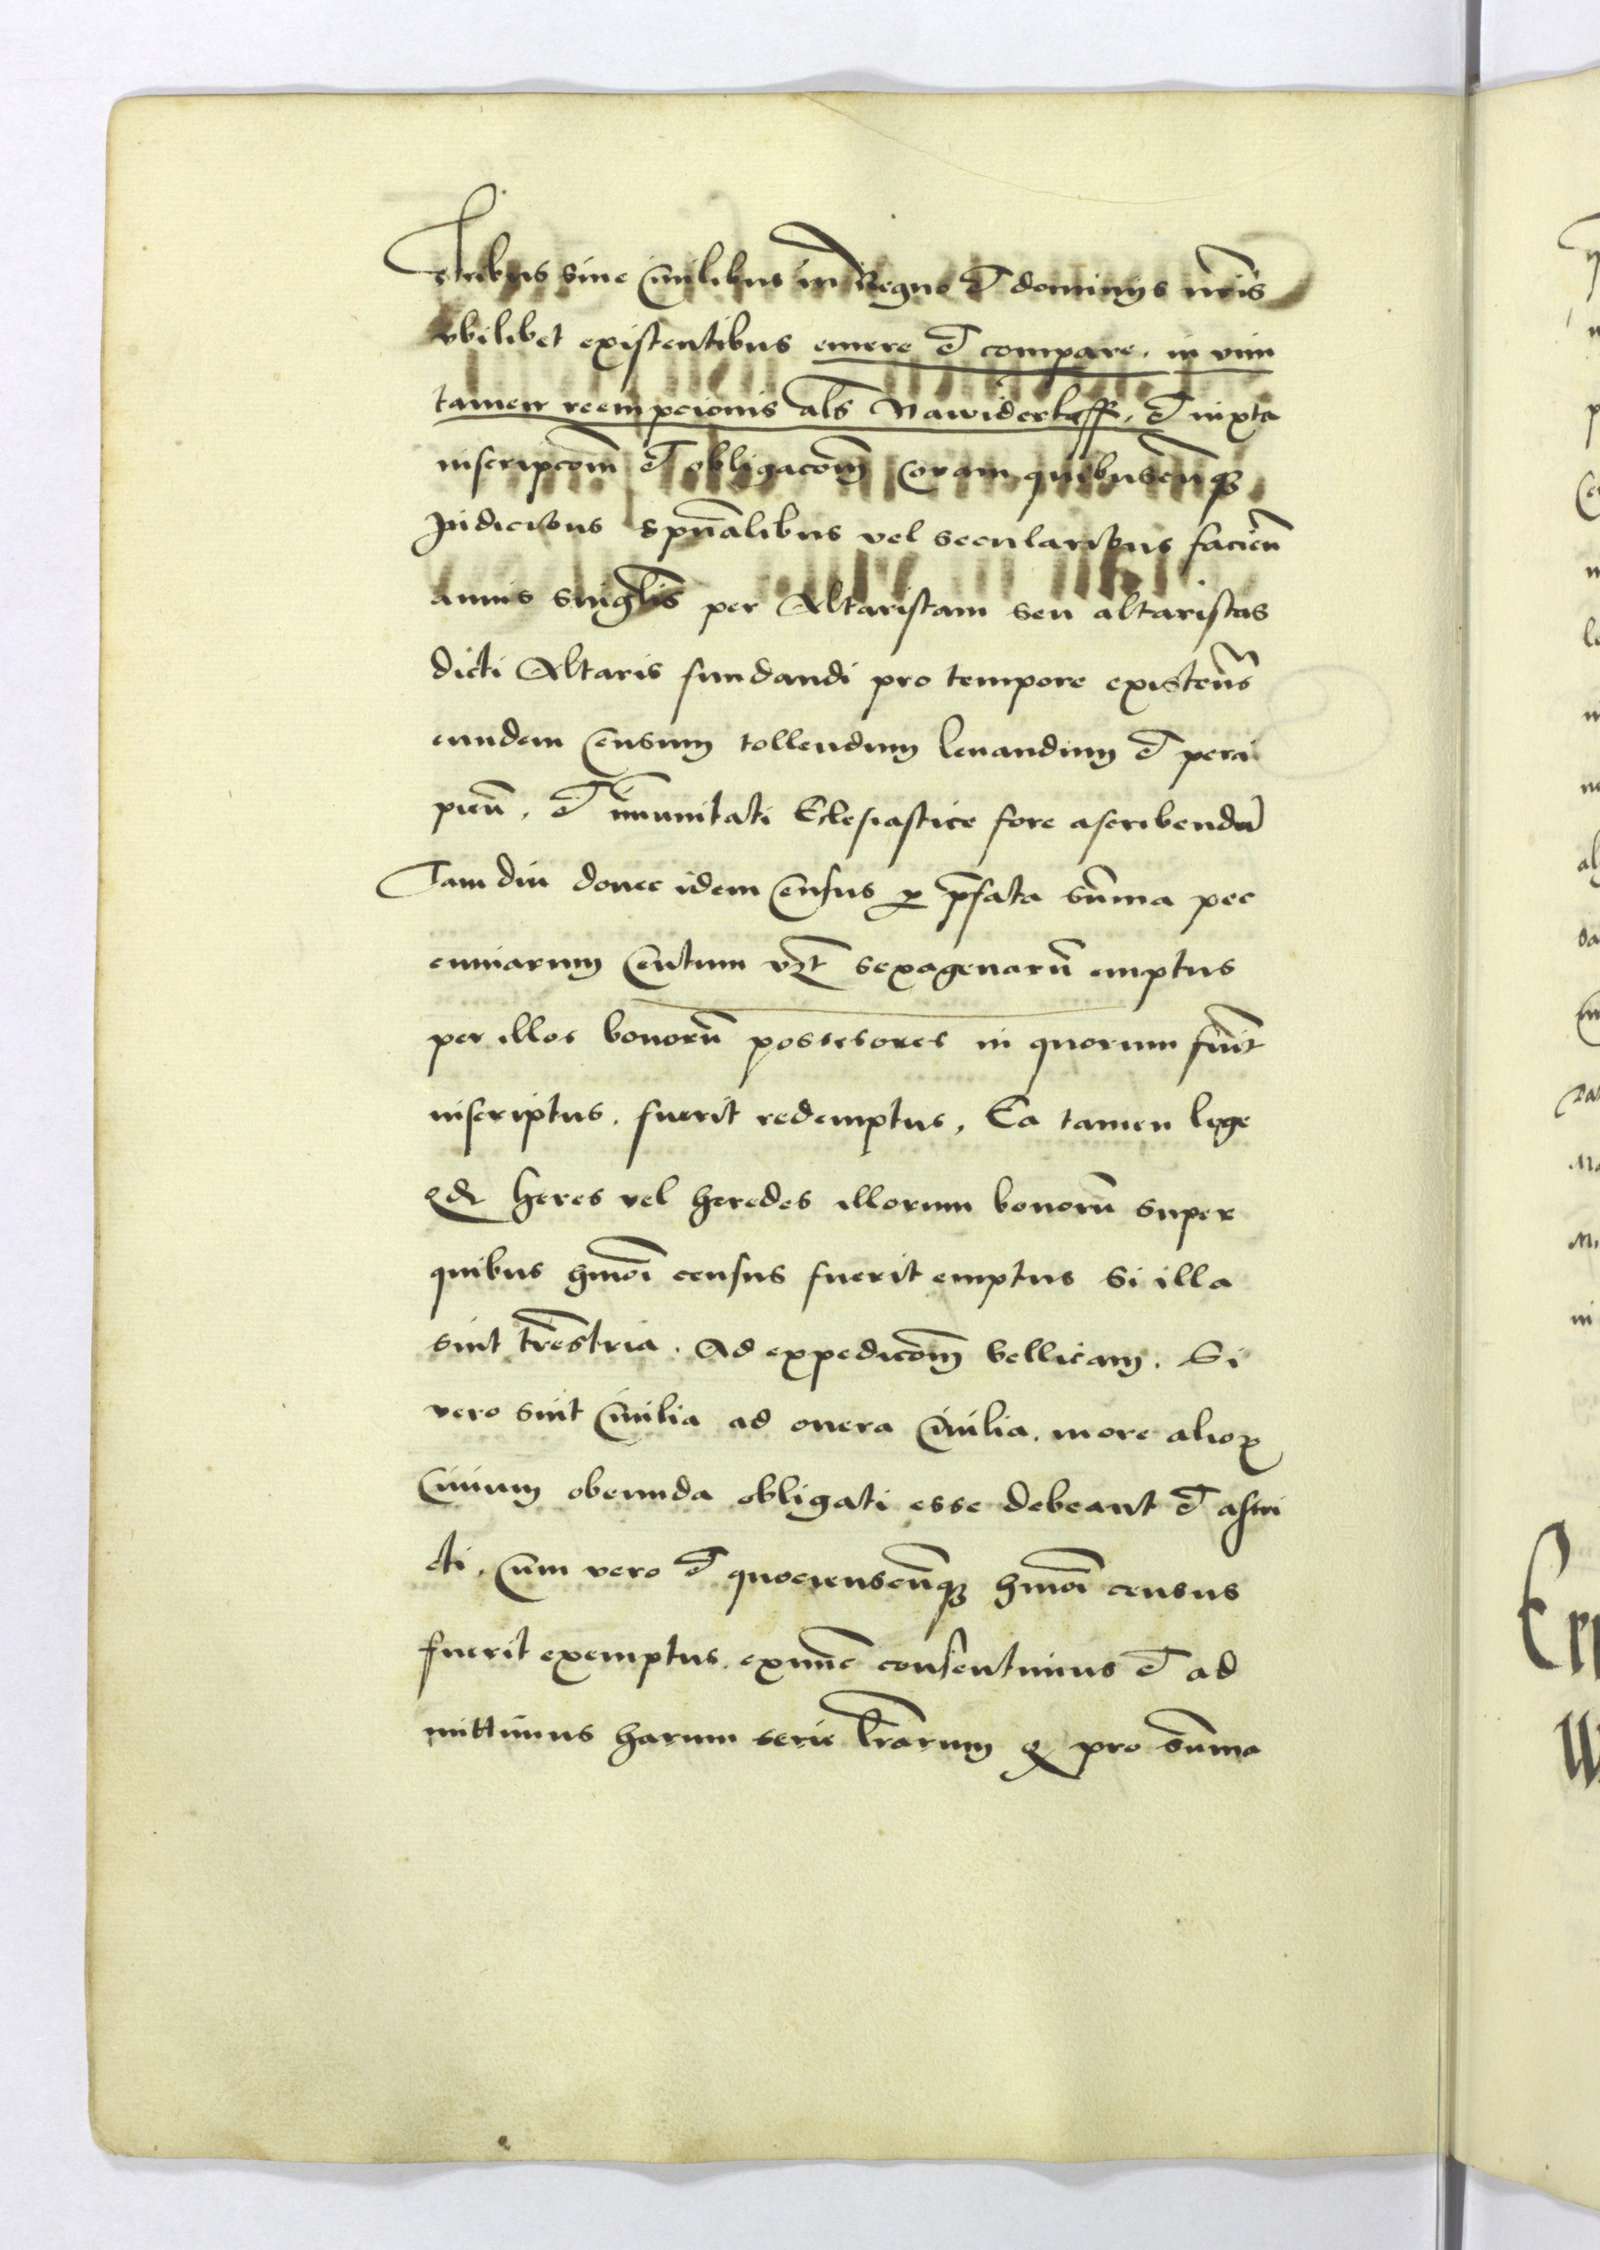 stribus sine Ciuilibus in Regno et dominijs nr̄is
vbilibet existentibus emere et compare. in vim
tamen reempcionis al̄s Nawiderkaff. et iuxta
inscripcōm et obligacōm Coram quibuscūqꝫ
Judicibus spūalibus vel secularibus faciēn
annis singl̄is per Altaristam seu altaristas
dicti Altaris fundandi pro tempore existen̄s
eundem Censum tollendum leuandum et perci
pien̄. et im̄unitati Eclesiastice fore ascribendū
Tam diu donec idem Census ꝑ p̄fata sum̄a pec
cuniarum Centum vꝫt sexagenarū emptus
per illos bonorū possesores in quorum fūit
inscriptus. fuerit redemptus, Ea tamen lege
qd heres vel heredes illorum bonorū super
quibus hmōi census fuerit emptus Si illa
sint tr̄estria. Ad expedicōm bellicam. Si
vero sint Ciuilia ad onera Ciuilia. more alioꝝ
Ciuium obeunda obligati esse debeant et astri
cti. Cum vero et quocienscūqꝫ hmōi census
fuerit exemptus. exnūc consentimus et ad
mittimus harum serie lr̄arum qꝫ pro sum̄a